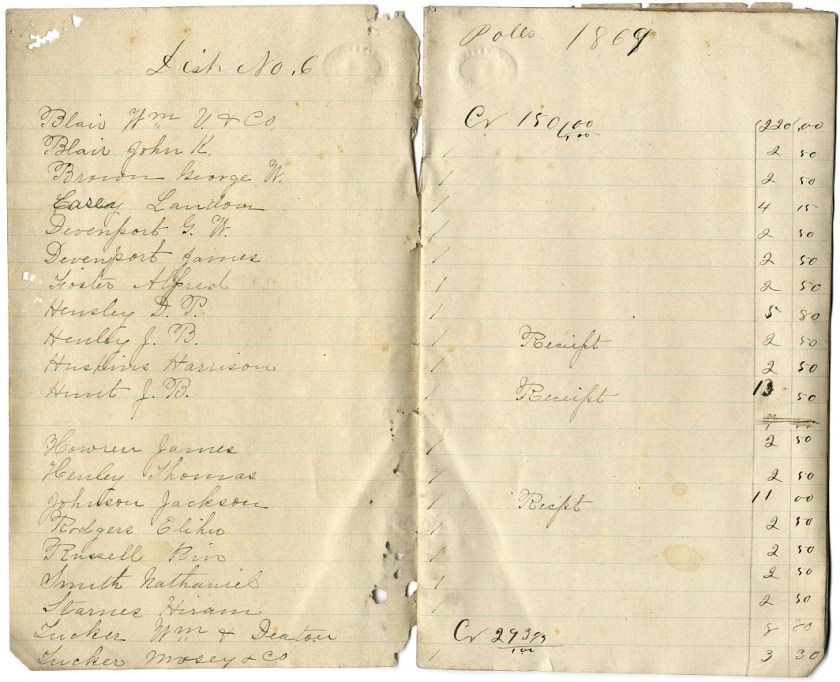 Dist No. 6
Polls 1869
Blair Wm U. & Co. Cr 150 1.00 220 00
Blair John K. / 2 50
Brown George W. / 2 50
Casey Landon / 4 15
Devenport G. W. / 2 50
Devenport James / 2 50
Foster Alfred / 2 50
Hensley D. P. / 5 80
Henley J. B. / Receipt 2 50
Huskins Harrison / 2 50
Hunt J. B. / Receipt 13 50
Howren James / 2 50
Henley Thomas / 2 50
Johnson Jackson / Recipt 11 00
Rodgers Elihu / 2 50
Russell / 2 50
Smith Nathaniel / 2 50
Starnes Hiram / 2 50
Tucker Wm & Cr 293 93 8 00
Tucker Mosey & Co / 3 30